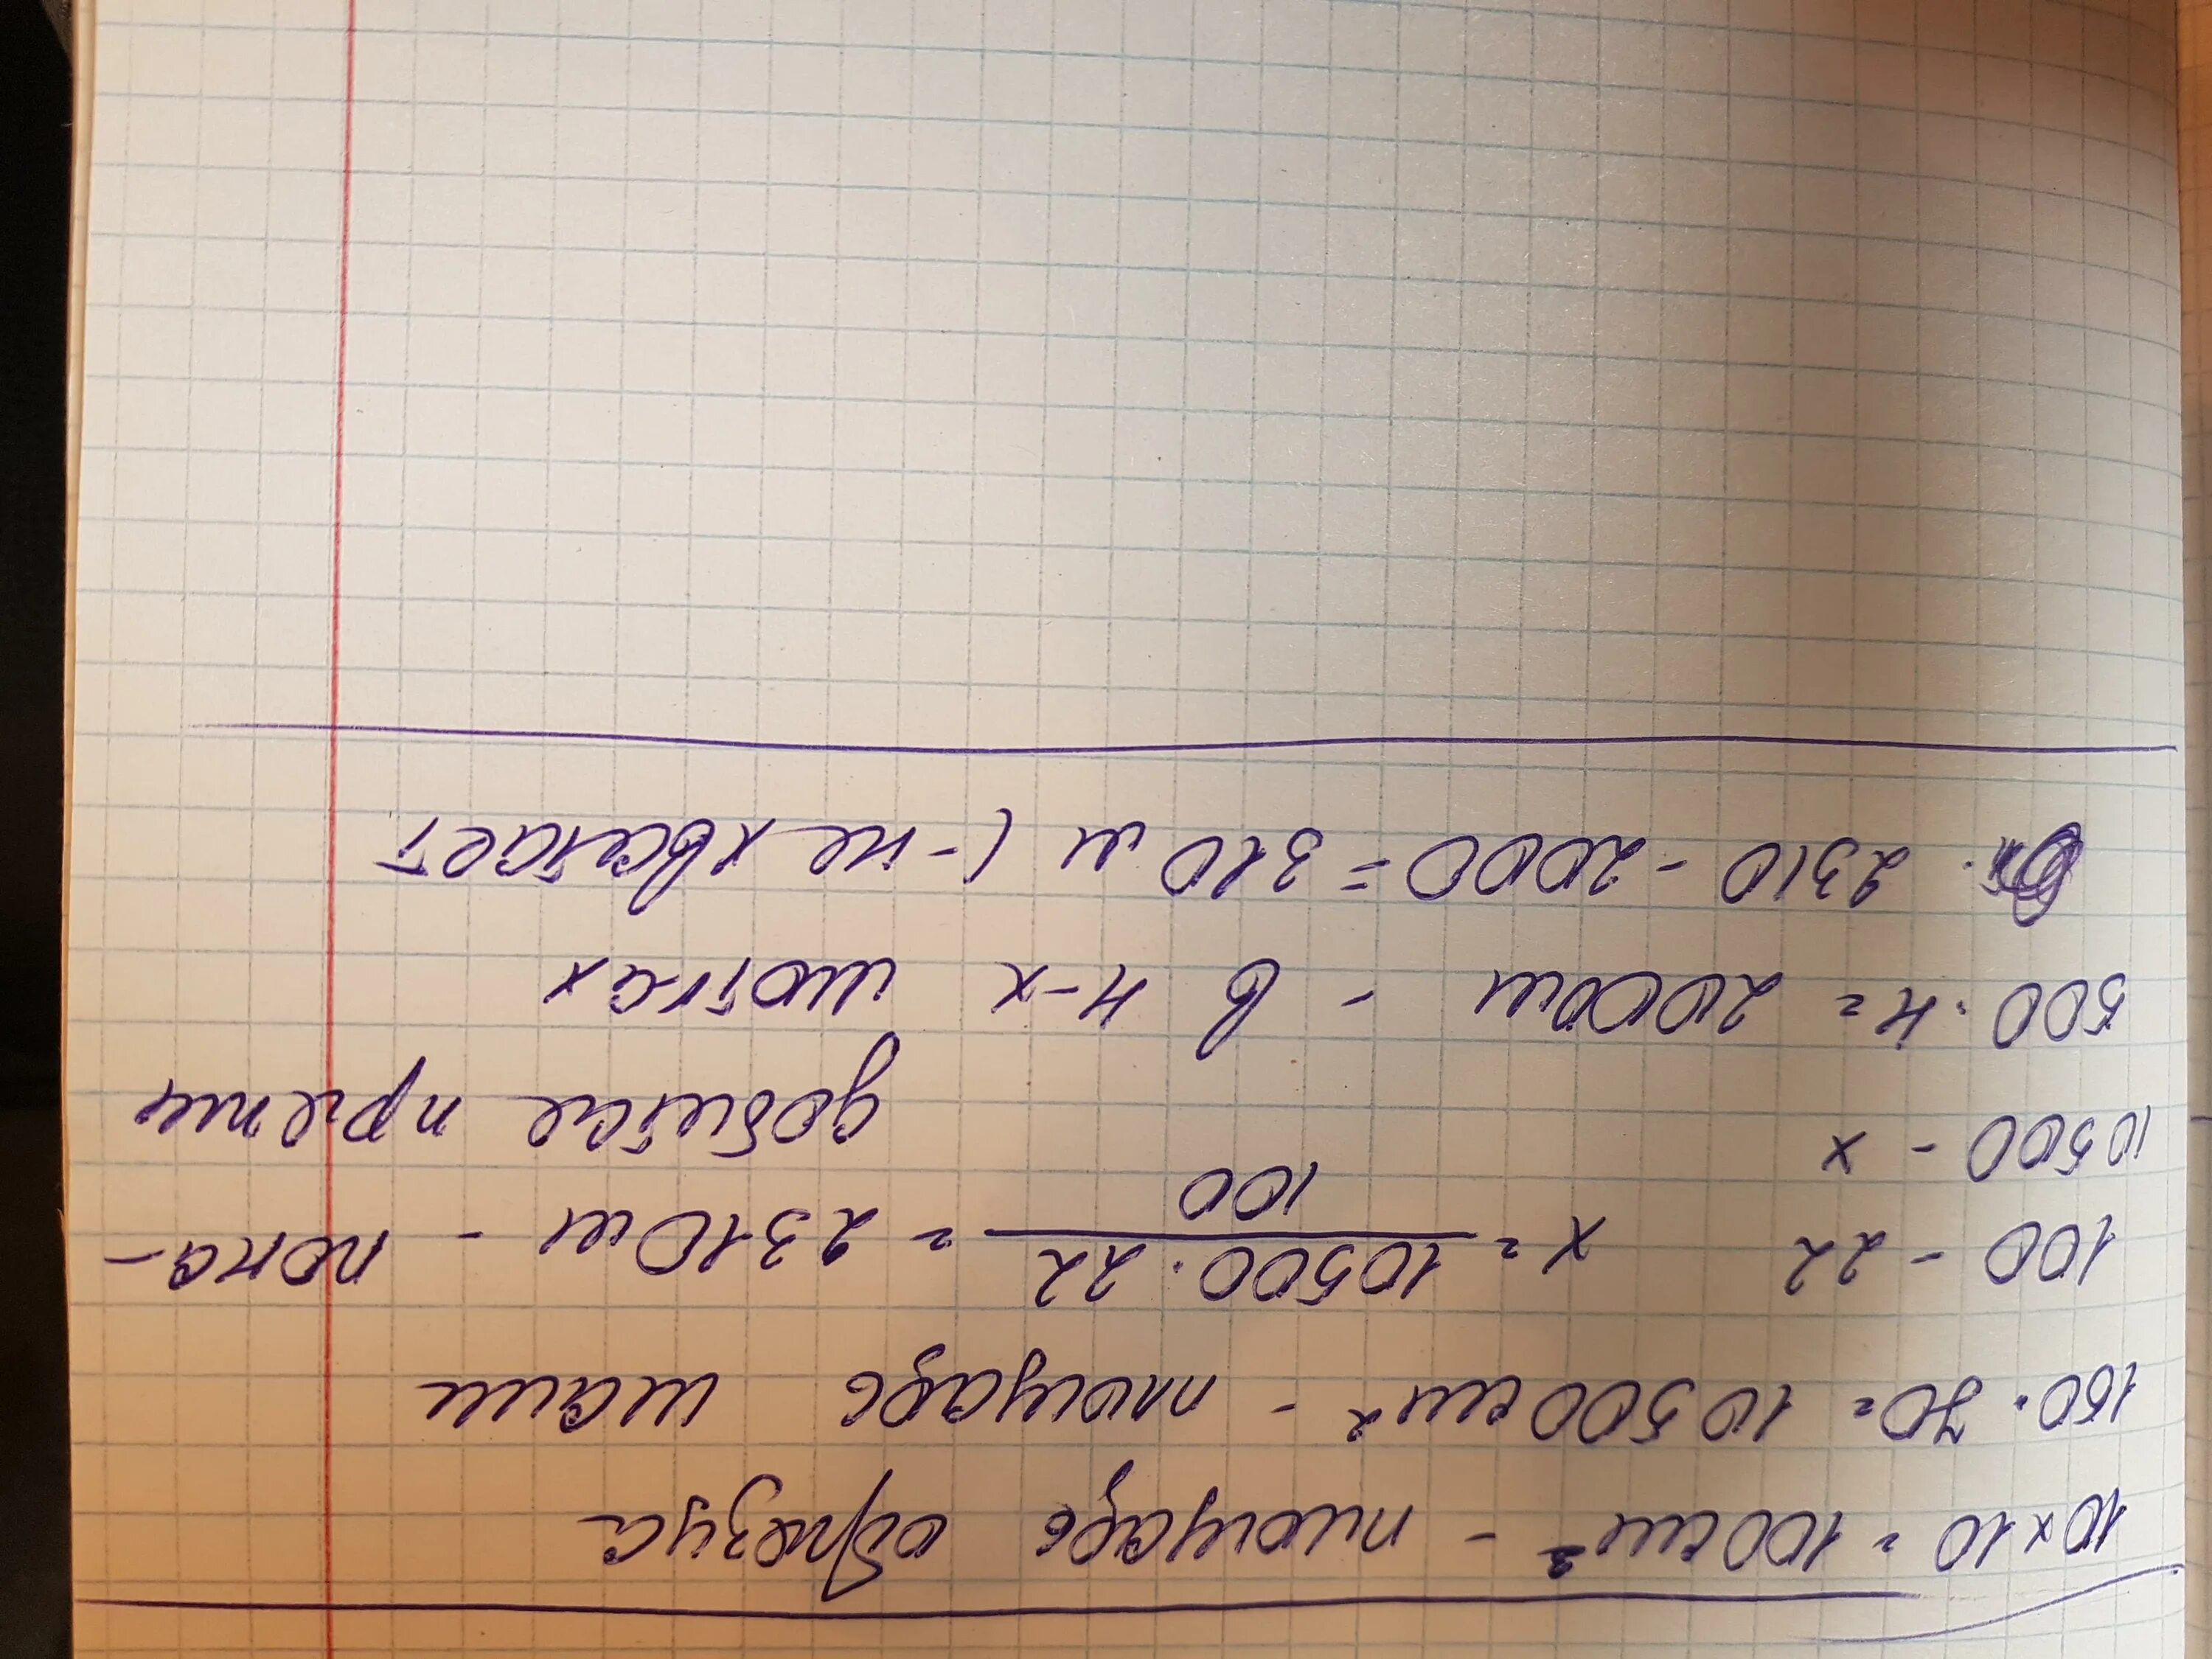 10 x 10 = 100 см² - площадь образца
150 · 70 = 10500 см² - площадь шали
100 - 22 x = 10500 · 22 / 100 = 2310 м - нона-
10500 - x добитсе пряжи
500 · 4 = 2000 м - в 4-х мотках
2310 - 2000 = 310 м (- не хватает